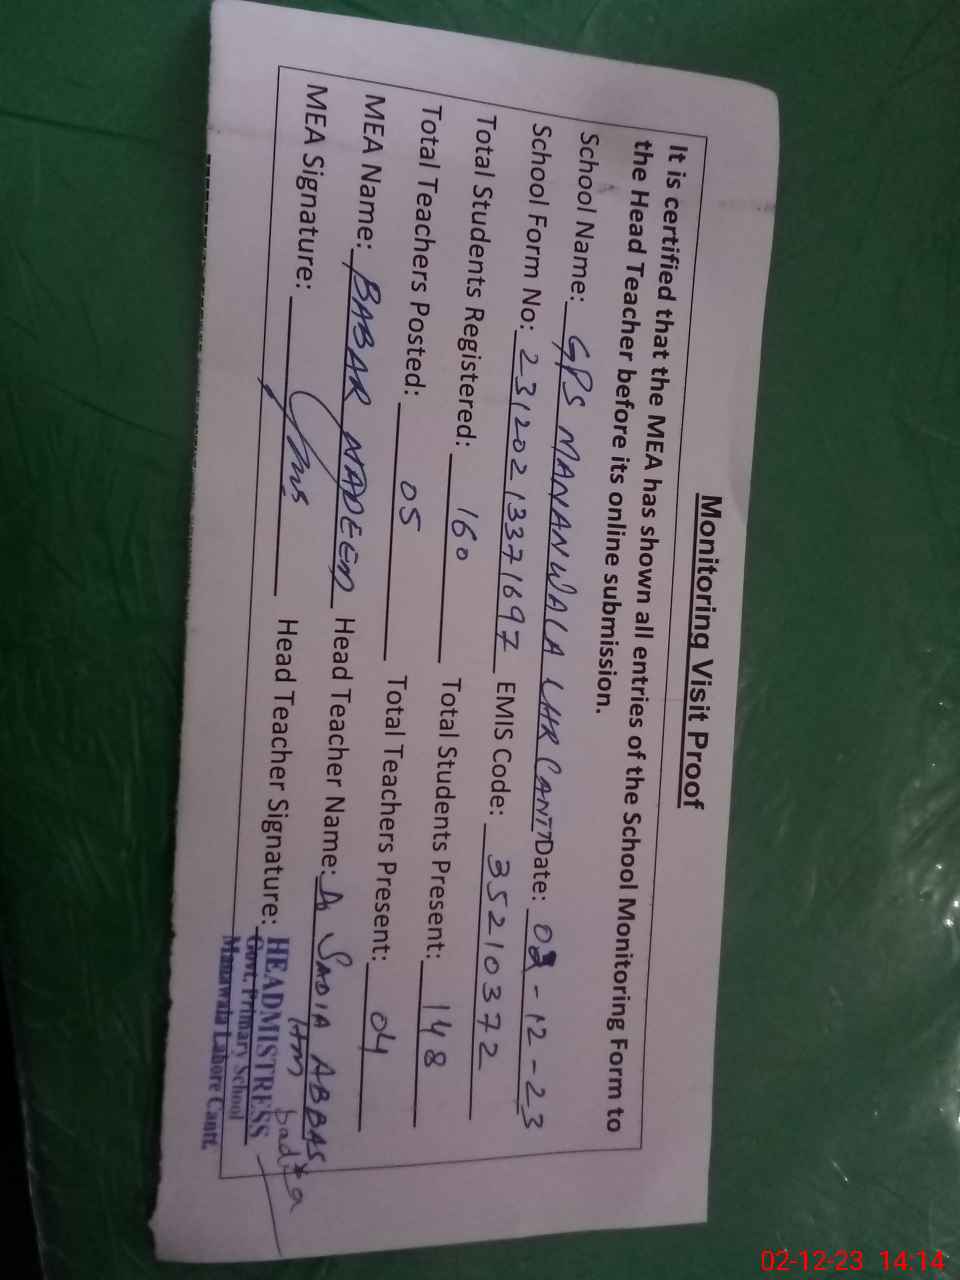 Monitoring Visit Proof
It is certified that the MEA has shown all entries of the School Monitoring Form to
the Head Teacher before its online submission.
School Name: GPS MANANWALA LHR CANTT Date: 02-12-23
School Form No: 23120213371697 EMIS Code: 35210372
Total Students Registered: 160 Total Students Present: 148
Total Teachers Posted: 05 Total Teachers Present: 04
MEA Name: BABAR NADEEM Head Teacher Name: SADIA ABBAS
MEA Signature: Head Teacher Signature:
HEADMISTRESS
Govt. Primary School
Manawala Lahore Cantt.
02-12-23 14:14